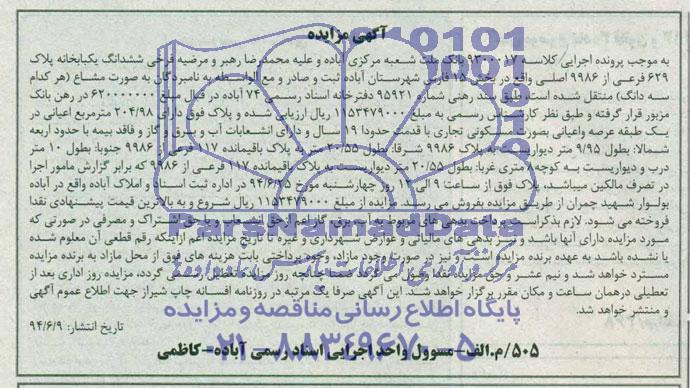 آگهی مزایده
به موجب پرونده اجرایی کلاسه ۹۲۰۰۰۱۷ بانک ملت شعبه مرکزی آباده و علیه محمدرضا رهبر و مرضیه فرخی ششدانگ یکبابخانه پلاک
۶۲۹ فرعی از ۹۹۸۶ اصلی واقع در بخش ۱۵ فارس شهرستان آباده ثبت و صادر و مع الواسطه به نامبردگان به صورت مشاع (هر کدام
سه دانگ) منتقل شده است، طبق سند رهنی شماره ۹۵۹۲۱ دفترخانه اسناد رسمی ۷۴ آباده در قبال مبلغ ۶۲۰۰۰۰۰۰۰ در رهن بانک
مزبور قرار گرفته و طبق نظر کارشناس رسمی به مبلغ ۱۱۵۳۴۷۹۰۰۰ ریال ارزیابی شده و پلاک فوق دارای ۲۰۴/۹۸ مترمربع اعیانی در
یک طبقه عرصه واعیانی بصورت مسکونی تجاری با قدمت حدودا ۱۹ سال و دارای انشعابات آب و برق و گاز و فاقد بیمه با حدود اربعه
شمالا: بطول ۹/۹۵ متر دیواریست به پلاک ۹۹۸۶ شرقا: بطول ۲۰/۵۵ متر به پلاک باقیمانده ۱۱۷ فرعی از ۹۹۸۶ جنوبا: بطول ۱۰ متر
درب و دیواریست به کوچه متری غربا: بطول ۲۰/۵۵ متر دیواریست به پلاک باقیمانده ۱۱۷ فرعی از ۹۹۸۶ که برابر گزارش مامور اجرا
در تصرف مالکین میباشد، پلاک فوق از ساعت ۹ الی ۱۲ روز چهارشنبه مورخ ۹۴/۶/۲۵ در اداره ثبت اسناد و املاک آباده واقع در آباده
بولوار شهید چمران از طریق مزایده بفروش می رسد. مزایده از مبلغ ۱۱۵۳۴۷۹۰۰۰ ریال شروع و به بالاترین قیمت پیشنهادی نقدا
فروخته می شود. لازم بذکراست پرداخت بدهی های مربوط به آب، برق، گاز اعم از حق انشعاب و یا حق اشتراک و مصرفی در صورتی که
مورد مزایده دارای آنها باشد و نیز بدهی های مالیاتی و عوارض شهرداری و غیره تا تاریخ مزایده اعم ازاینکه رقم قطعی آن معلوم شده
یا نشده باشد به عهده برنده مزایده است و نیز در صورت وجود مازاد، وجوه پرداختی بابت هزینه های فوق از محل مازاد به برنده مزایده
مسترد خواهد شد و نیم عشر و حق مزایده نقدا وصول می گردد. ضمنا چنانچه روز مزایده تعطیل رسمی گردد، مزایده روز اداری بعد از
تعطیلی درهمان ساعت و مکان مقرر برگزار خواهد شد. این آگهی صرفا یک مرتبه در روزنامه افسانه چاپ شیراز جهت اطلاع عموم آگهی
و منتشر خواهد شد.
تاریخ انتشار: ۹۴/۶/۹
۵۰۵/م.الف-مسوول واحد اجرایی اسناد رسمی آباده-کاظمی
ParsNamadData
پایگاه اطلاع رسانی مناقصه و مزایده
۰۲۱-۸۸۳۴۹۶۷۰-۵